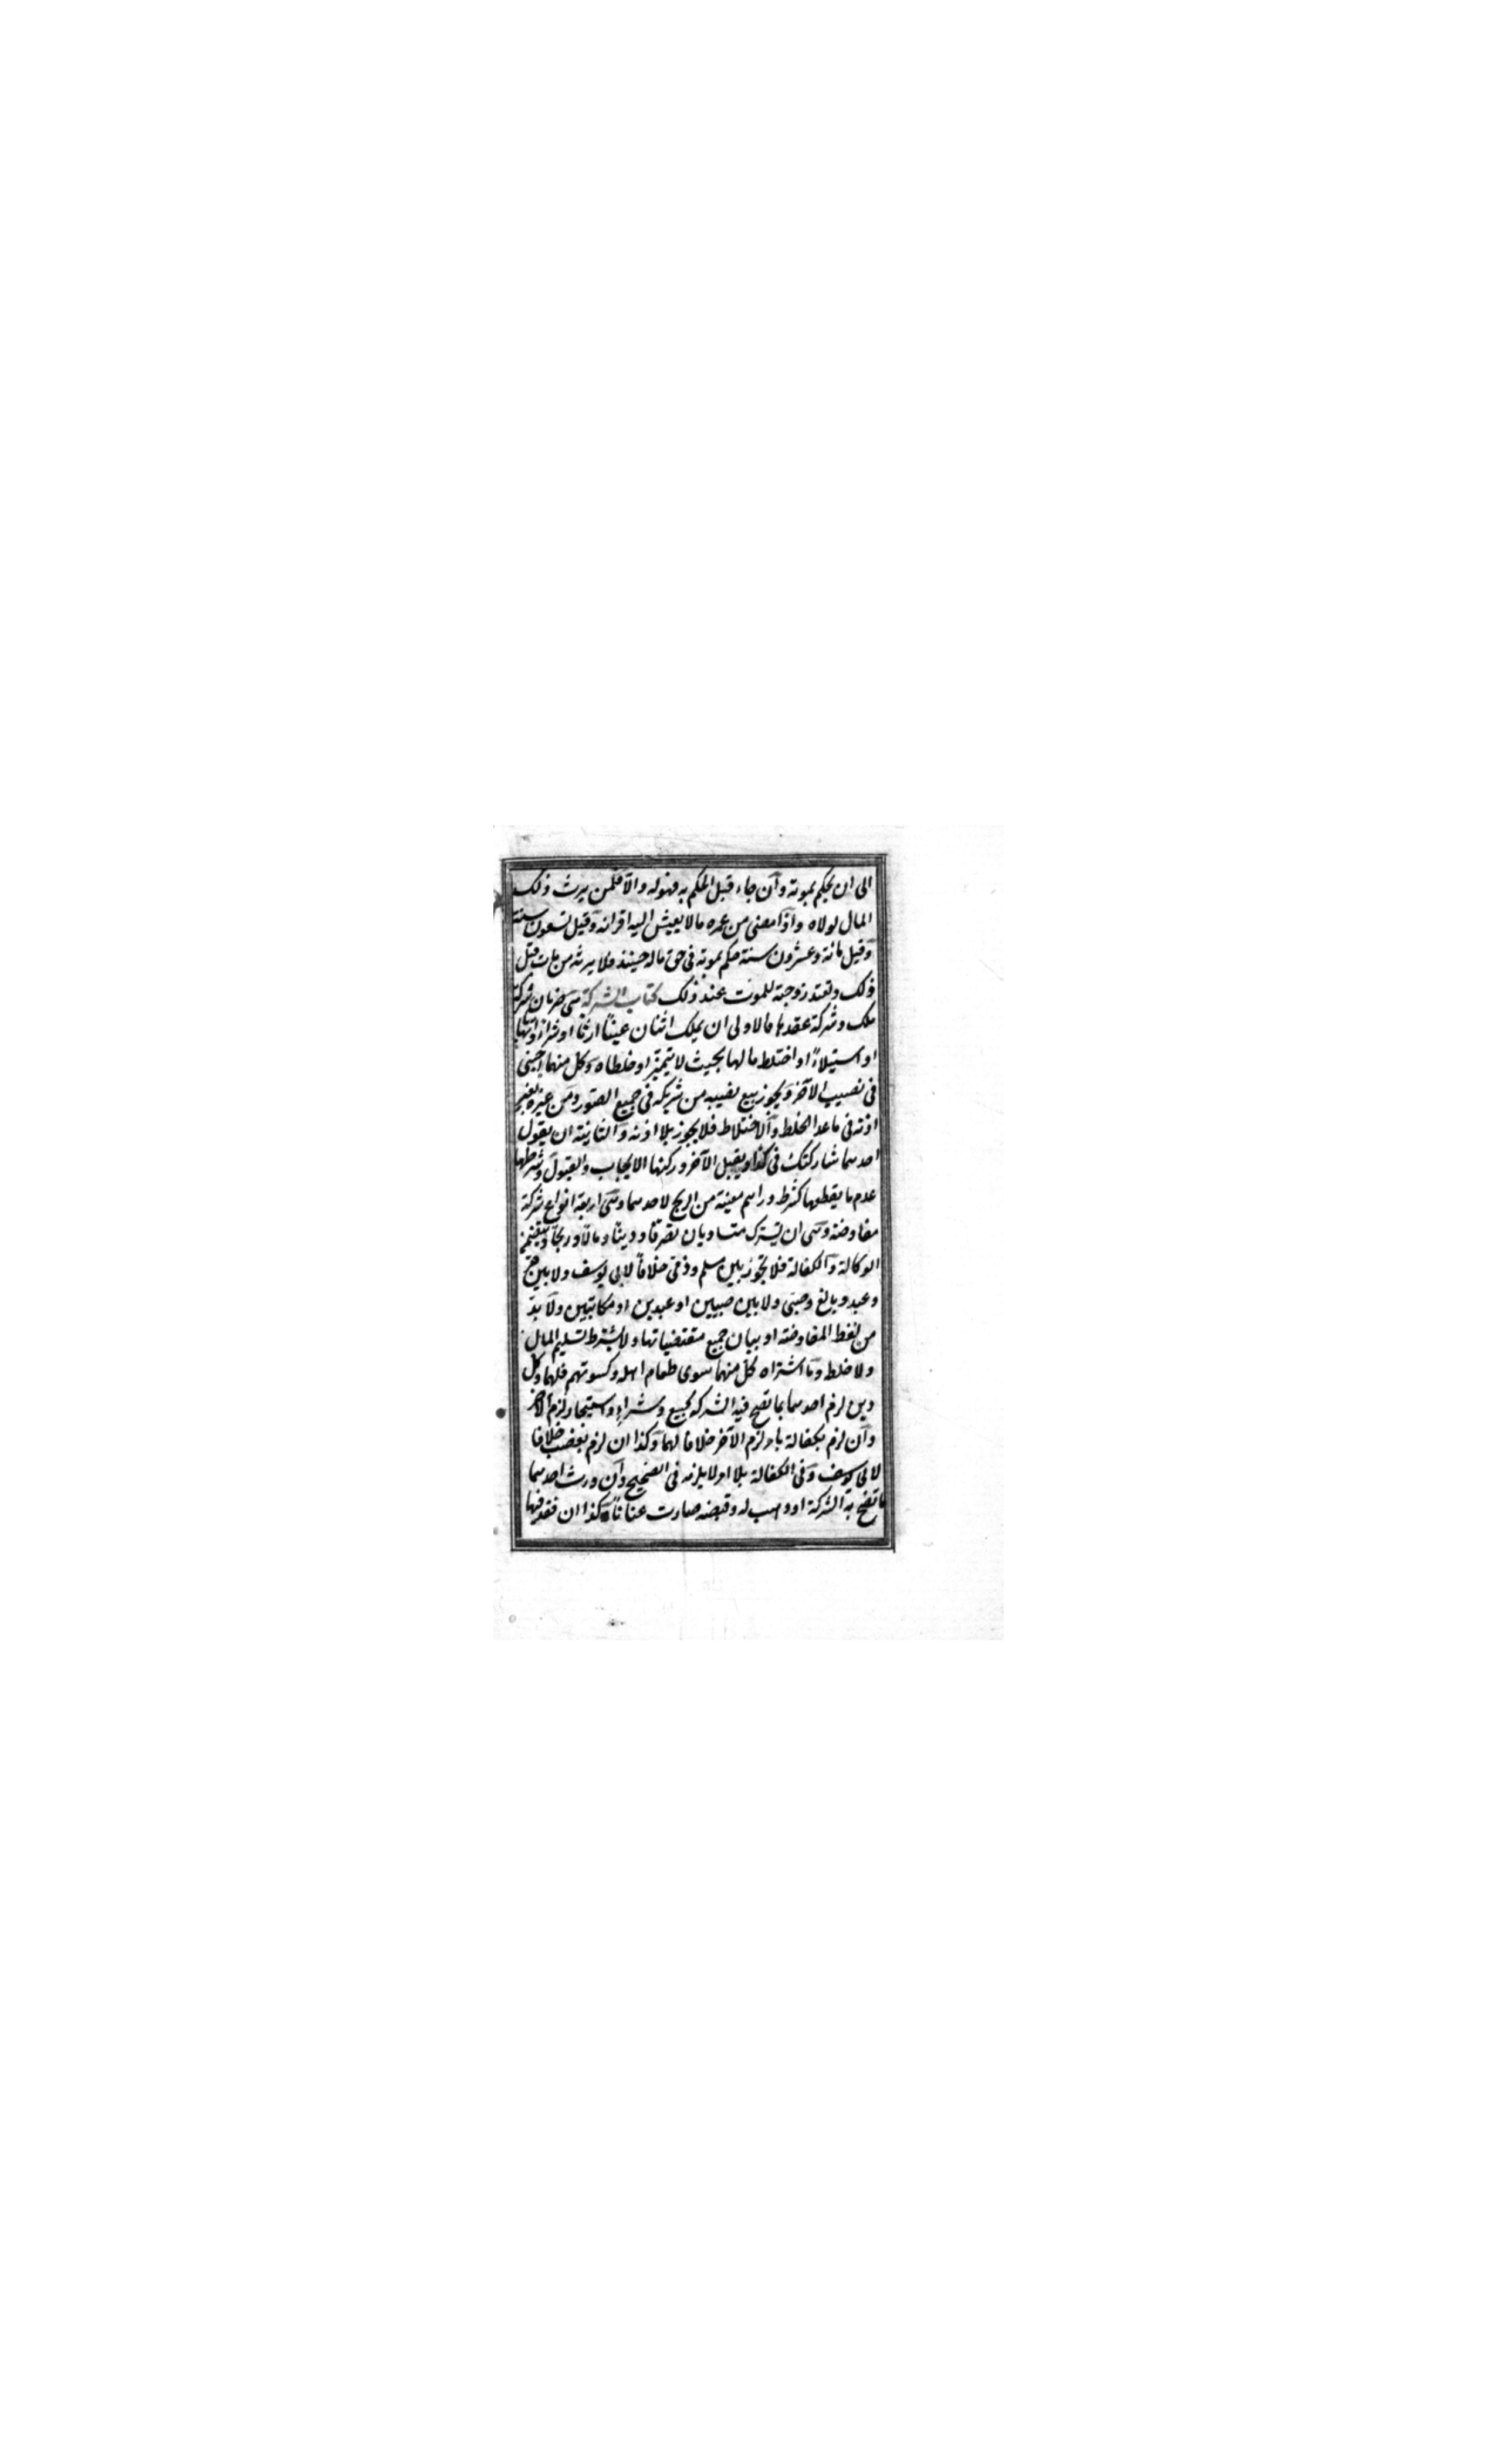 الى ان يحكم بموته وان جاء قبل الحكم به فهو له والا فلمن يرث ذلك
المال لولاه واذا مضى من عمره ما لا يعيش اليه اقرانه وقيل تسعون سنة
وقيل مائة وعشرون سنة حكم بموته فى حق ماله حينئذ فلا يرثه من مات قبل
ذلك وتعتد زوجته للموت عند ذلك كتاب الشركة هى ضربان شركة
ملك وشركة عقد فالاولى ان يملك اثنان عينا ارثا او شراء او اتهابا
او استيلاءً او اختلط مالهما بحيث لا يتميز او خلطاه وكل منهما اجنبى
فى نصيب الآخر ويجوز بيع نصيبه من شريكه فى جميع الصور ومن غيره بغير
اذنه فى ماعدا الخلط والاختلاط فلا يجوز بلا اذنه والثانية ان يقول
احدهما شاركتك فى كذا ويقبل الآخر وركنها الايجاب والقبول وشرطها
عدم ما يقطعها كشرط دراهم معينة من الربح لاحدهما وهى اربعة انواع شركة
مفاوضة وهى ان يشترك متساويان تصرفا ودينًا ومالًا وربحًا وتتضمن
الوكالة والكفالة فلا تجوز بين مسلم وذمى خلافًا لابى يوسف ولا بين حر
وعبد وبالغ وصبى ولا بين صبيين او عبدين او مكاتبين ولا بد
من لفظ المفاوضة او بيان جميع مقتضياتها ولا يشترط تسليم المال
ولا خلط وما اشتراه كل منهما سوى طعام اهله وكسوتهم فلهما وكل
دين لزم احدهما بما تصح فيه الشركة كبيع وشراء واستيجار لزم الآخر
وان لزم بكفالة بامر لزم الآخر خلافا لهما وكذا ان لزم بغصب خلافا
لابى يوسف وفى الكفالة بلا امر لا يلزمه فى الصحيح وان ورث احدهما
ما تصح به الشركة او وهب له وقبضه صارت عنانًا وكذا ان فقد فيها